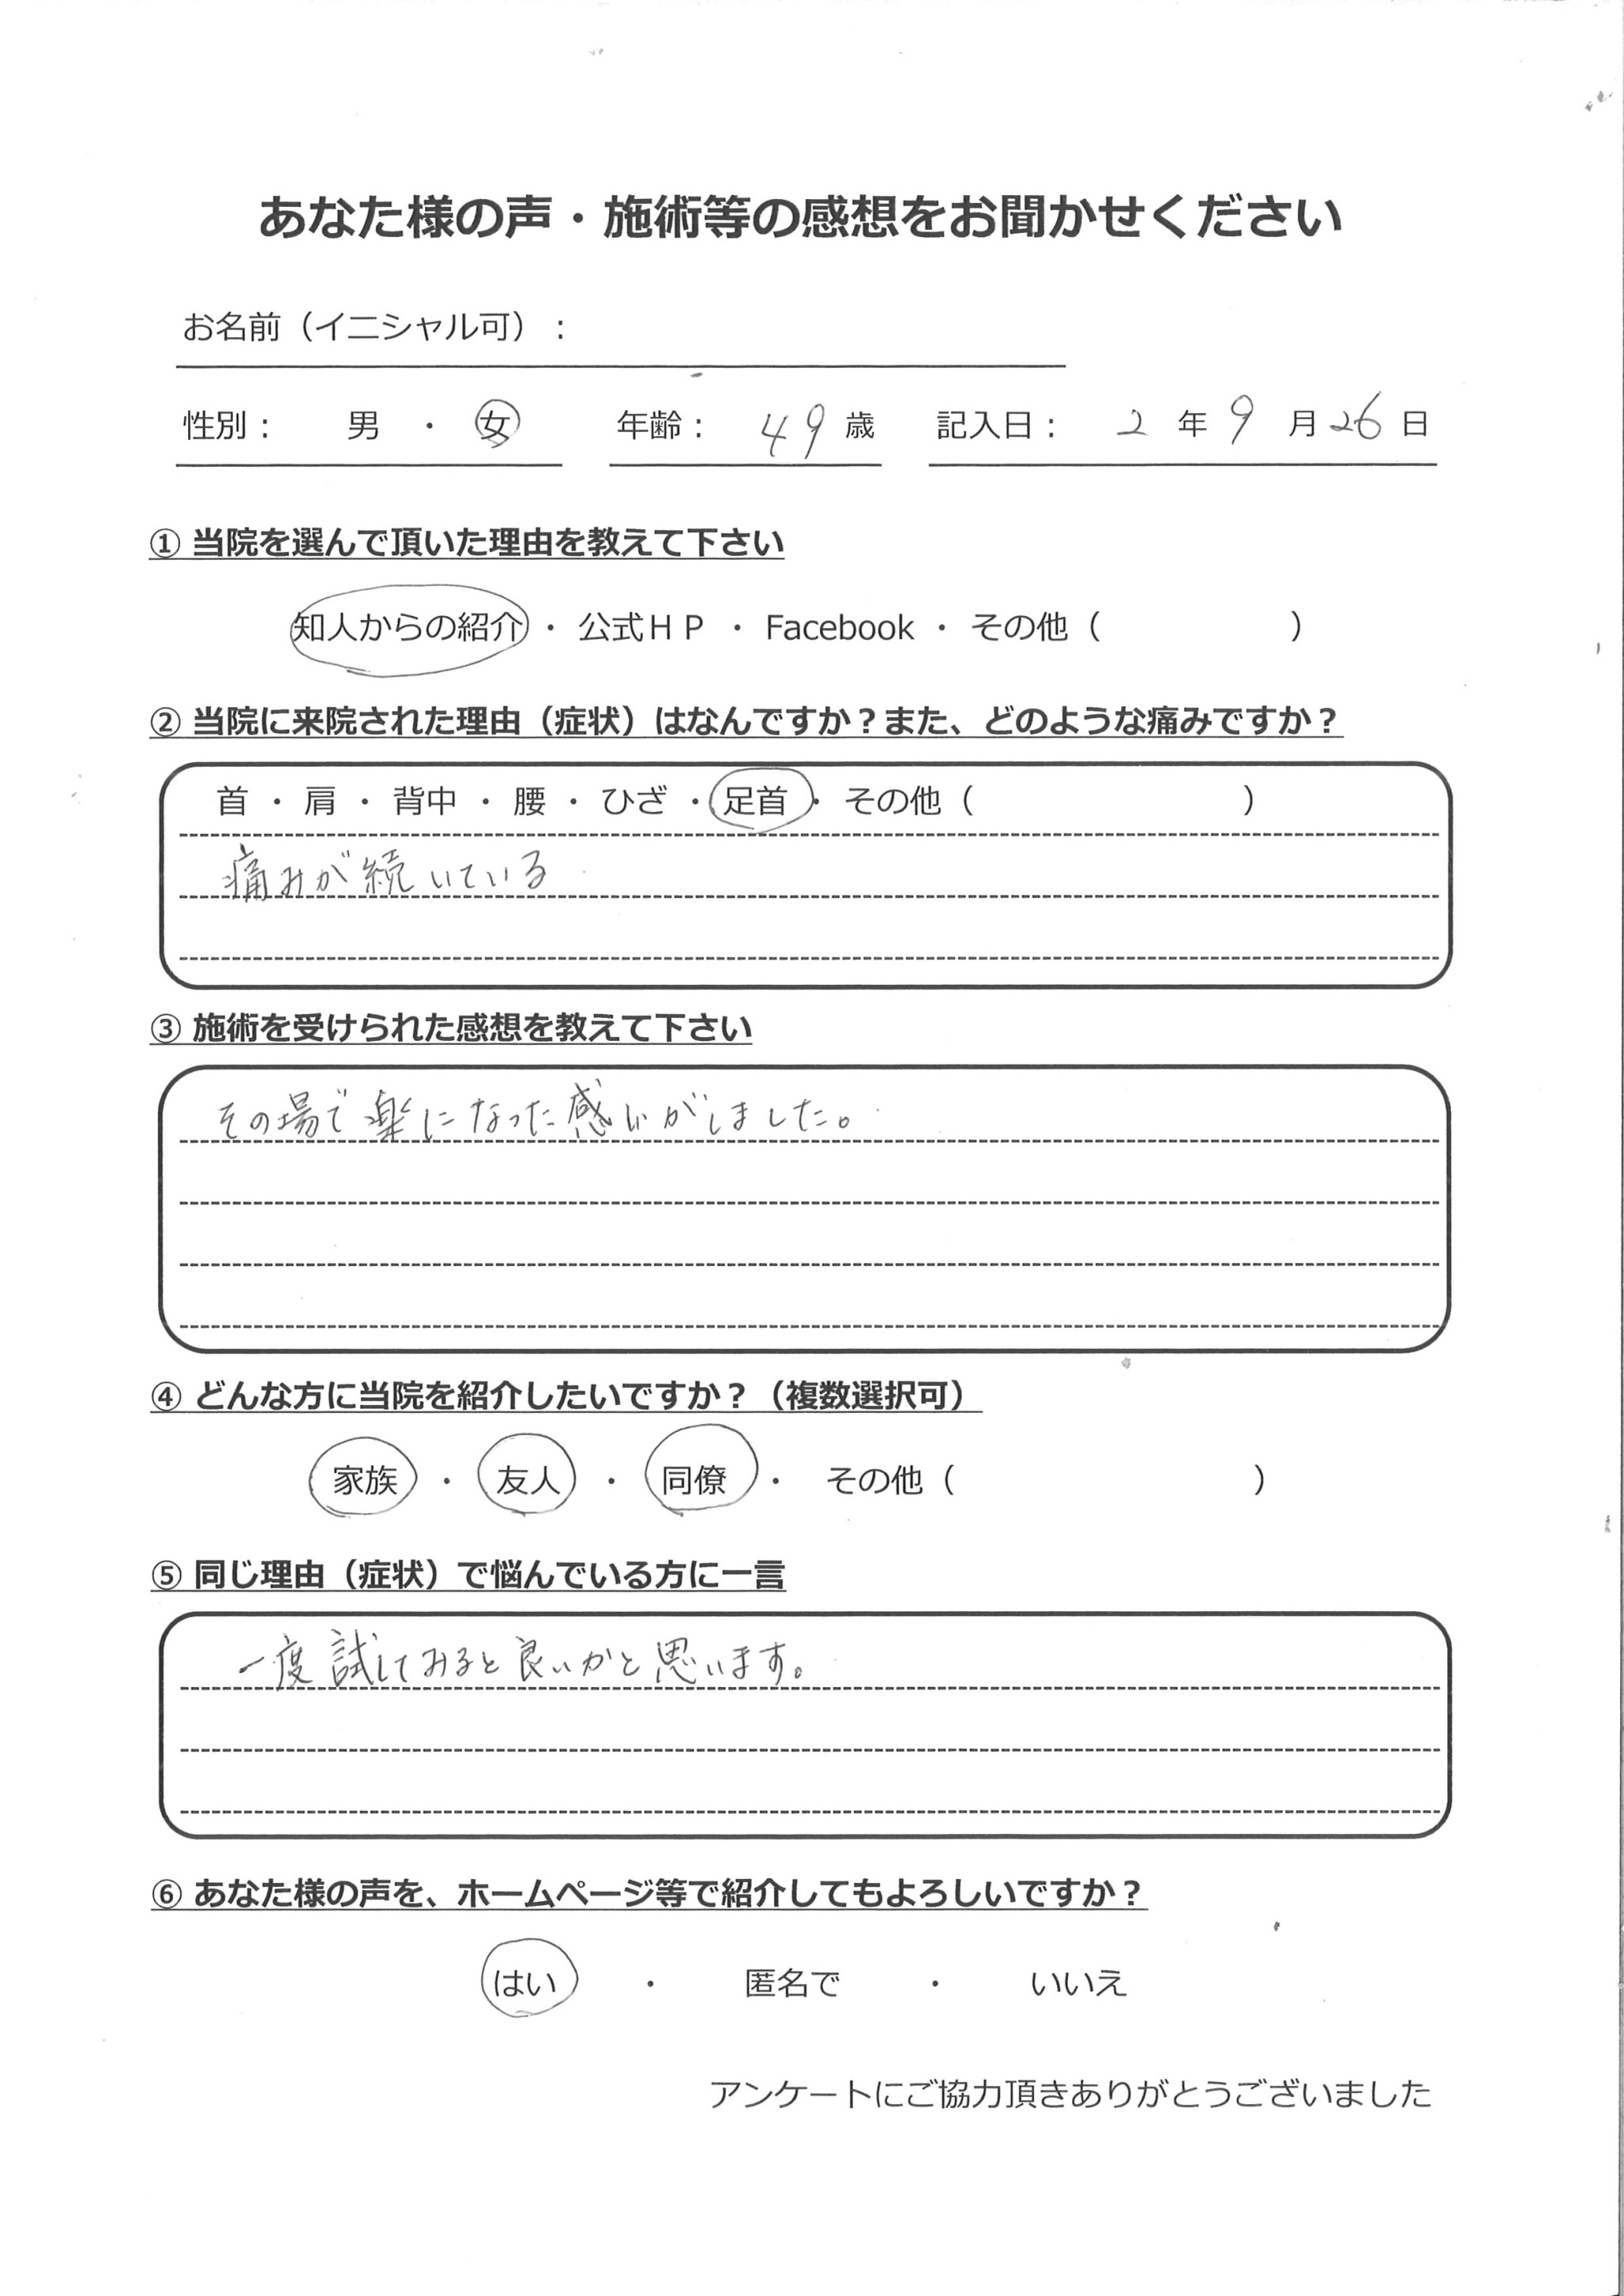 あなた様の声・施術等の感想をお聞かせください
お名前（イニシャル可）：
性別： 男 ・ 女 年齢： 49 歳 記入日： 2 年 9 月 26 日
① 当院を選んで頂いた理由を教えて下さい
知人からの紹介 ・ 公式ＨＰ ・ Facebook ・ その他（ ）
② 当院に来院された理由（症状）はなんですか？また、どのような痛みですか？
首 ・ 肩 ・ 背中 ・ 腰 ・ ひざ ・ 足首 ・ その他（ ）
痛みが続いている
③ 施術を受けられた感想を教えて下さい
その場で楽になった感じがしました。
④ どんな方に当院を紹介したいですか？（複数選択可）
家族 ・ 友人 ・ 同僚 ・ その他（ ）
⑤ 同じ理由（症状）で悩んでいる方に一言
一度試してみると良いかと思います。
⑥ あなた様の声を、ホームページ等で紹介してもよろしいですか？
はい ・ 匿名で ・ いいえ
アンケートにご協力頂きありがとうございました